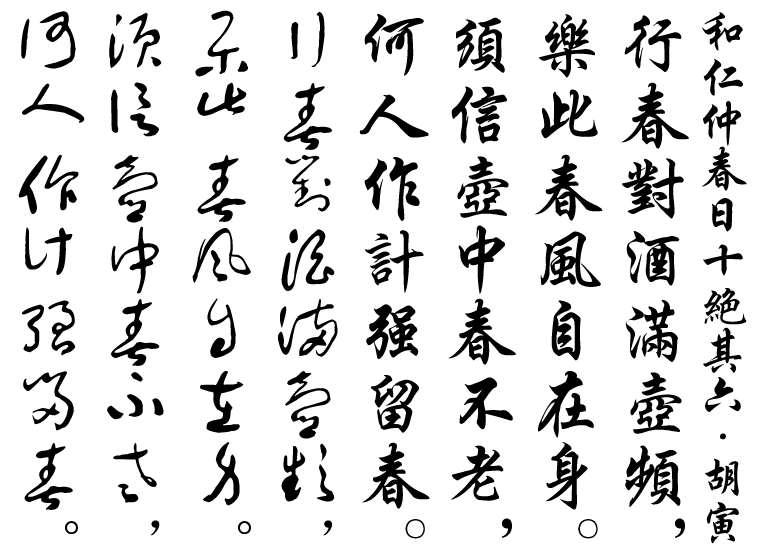 和仁仲春日十絶其六·胡寅
行春對酒滿壺頻，
樂此春風自在身。
須信壺中春不老，
何人作計强留春。
行春對酒滿壺頻，
樂此春風自在身。
須信壺中春不老，
何人作計强留春。